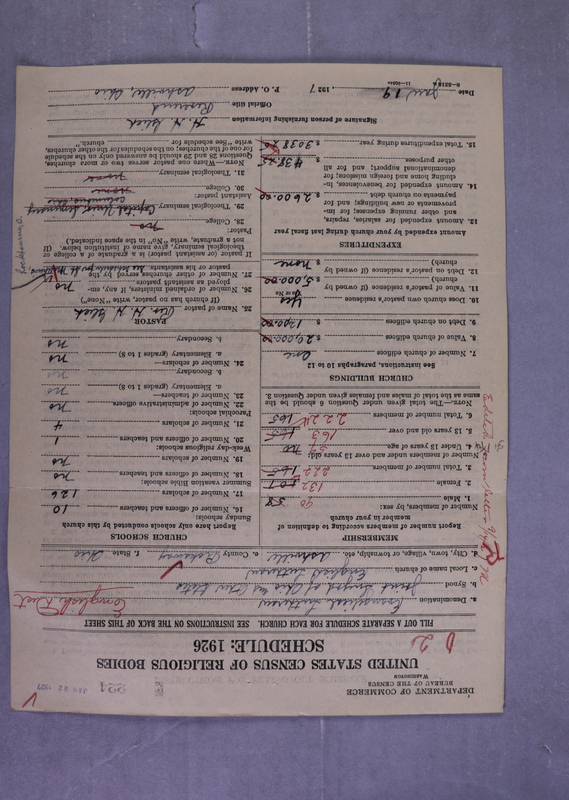 DEPARTMENT OF COMMERCE
BUREAU OF THE CENSUS
WASHINGTON
221
JAN 22 1927
UNITED STATES CENSUS OF RELIGIOUS BODIES
SCHEDULE: 1926
FILL OUT A SEPARATE SCHEDULE FOR EACH CHURCH. SEE INSTRUCTIONS ON THE BACK OF THIS SHEET
a. Denomination Evangelical Lutheran
English Dist.
b. Synod Joint Synod of Ohio and Other States
c. Local name of church English Lutheran
d. City, town, village, or township, etc. Ashville e. County Pickaway f. State Ohio
MEMBERSHIP
Report number of members according to definition of member in your church
Number of members, by sex:
1. Male 90 58
2. Female 132 107
3. Total members 222 165
Number of members under and over 13 years old:
4. Under 13 years of age no
5. 13 years old and over 163
6. Total number of members 222 165
NOTE.—The total given under Question 6 should be the same as the total of males and females given under Question 3.
CHURCH BUILDINGS
See instructions, paragraphs 10 to 12
7. Number of church edifices one
8. Value of church edifices $
9. Debt on church edifices $
10. Does own pastor's residence yes
Yes or No
11. Value of pastor's residence (if owned by church) $ 5,000.00
12. Debt on pastor's residence (if owned by church) $ none
EXPENDITURES
Amount expended by your church during last fiscal year
13. Amount expended for salaries, repairs, and other running expenses; for improvements or new buildings; and for payments on church debt $ 2600.00
14. Amount expended for benevolences, including home and foreign missions; for denominational support; and for all other purposes $ 438.25
15. Total expenditures during year $ 3038.20
CHURCH SCHOOLS
Report here only schools conducted by this church
Sunday schools:
16. Number of officers and teachers 10
17. Number of scholars 126
Summer vacation Bible schools:
18. Number of officers and teachers no
19. Number of scholars no
Week-day religious schools:
20. Number of officers and teachers 1
21. Number of scholars 4
Parochial schools:
22. Number of administrative officers no
23. Number of teachers—
a. Elementary (grades 1 to 8) no
b. Secondary no
24. Number of scholars—
a. Elementary (grades 1 to 8) no
b. Secondary no
PASTOR
25. Name of pastor Rev. H. H. Blich
(If church has no pastor, write "None")
26. Number of ordained ministers, if any, employed as assistants no
27. Number of other churches served by the pastor or his assistants
If pastor (or assistant pastor) is a graduate of a college or theological seminary, give name of institution below. (If not a graduate, write "No" in the space indicated.)
Pastor:
28. College no
29. Theological seminary
Assistant pastor:
30. College none
31. Theological seminary none
NOTE.—Where one pastor serves two or more churches, Questions 28 and 29 should be answered only on the schedule for one of the churches; on the schedules for the other churches, write "See schedule for church."
Signature of person furnishing information H. H. Blich
Official title Reverend
Date Jan 19, 1927 P. O. Address Ashville, Ohio